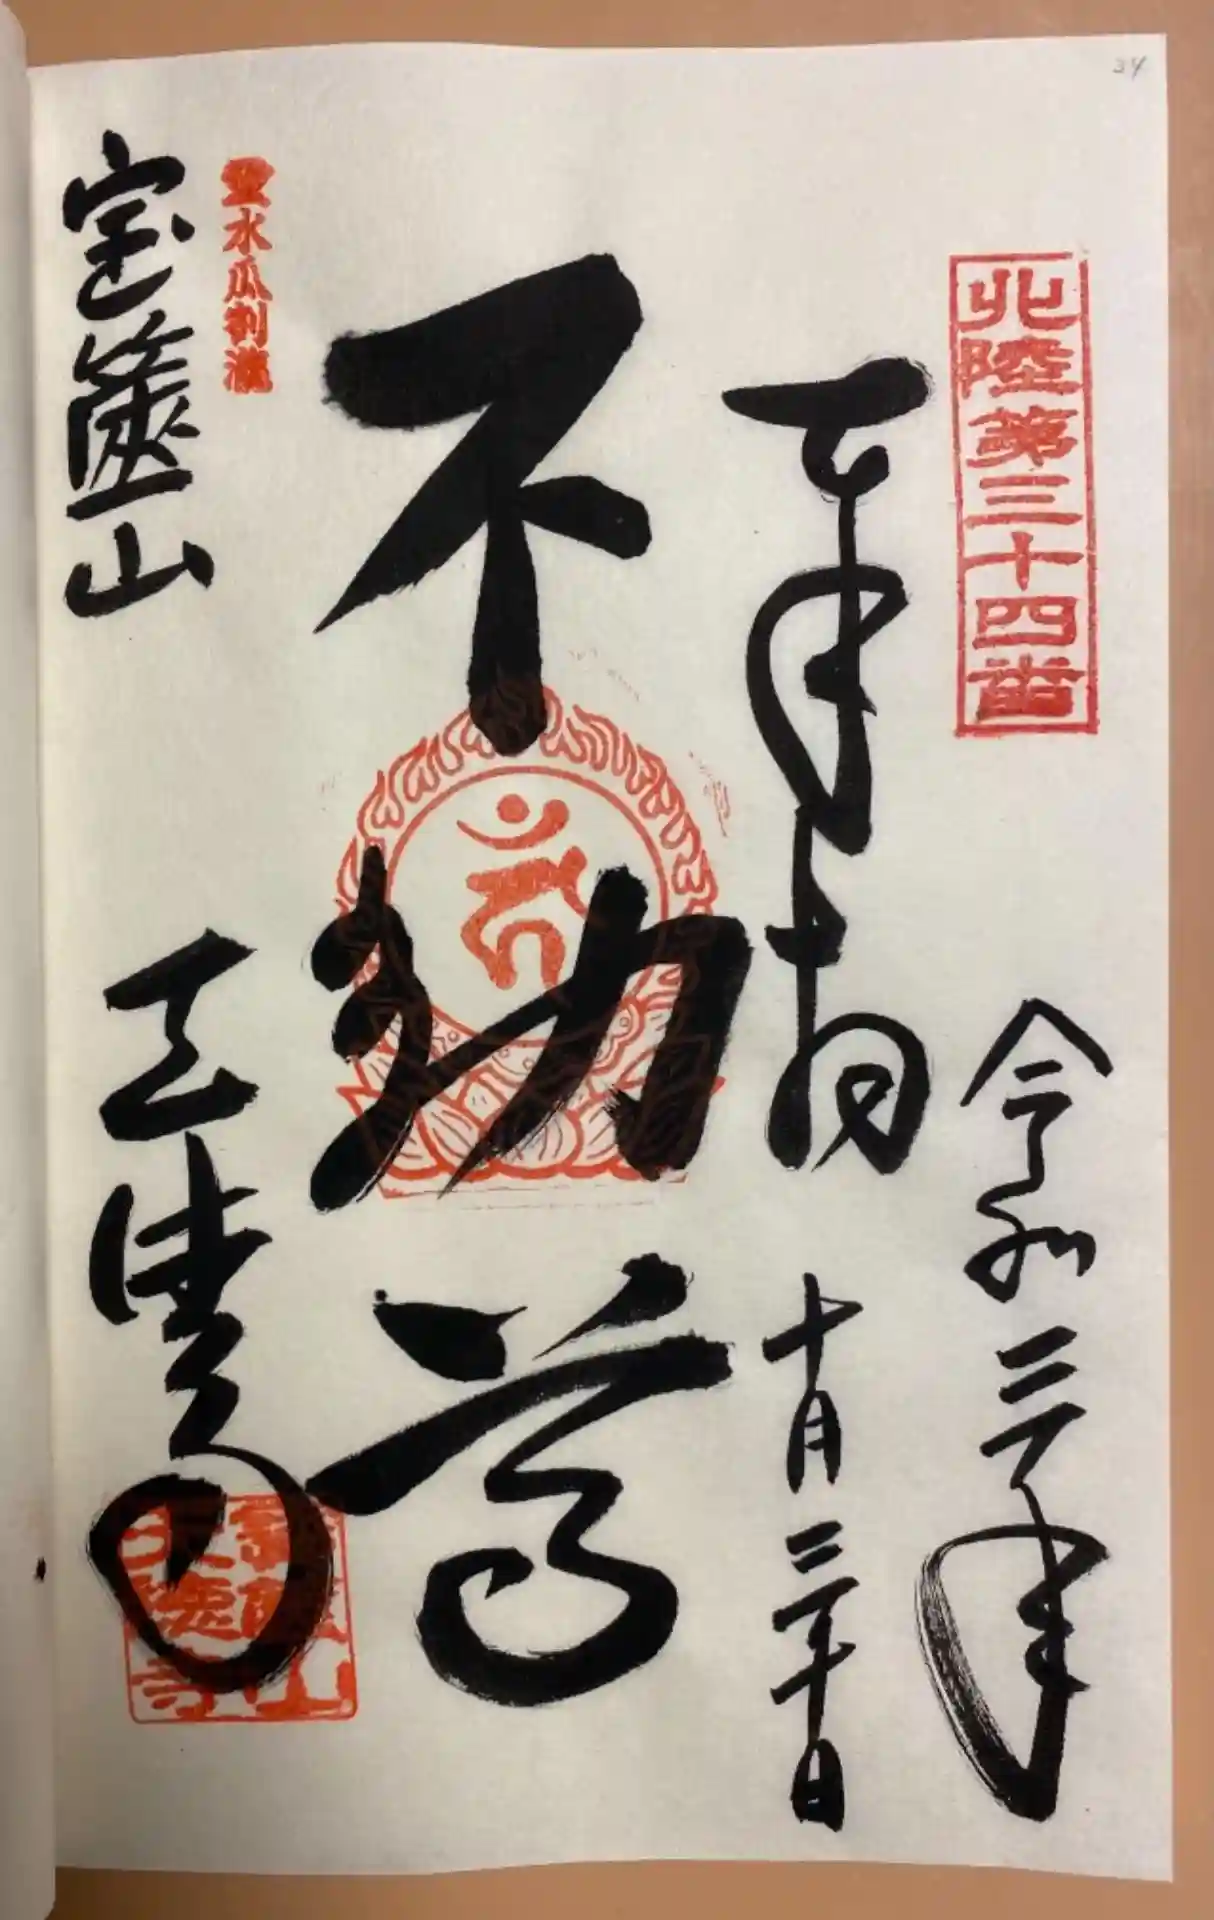 34
北陸第三十四番
令和三年
奉拝
十月三十日
不動尊
霊水瓜割瀧
宝篋山
天徳寺
宝篋山
天徳寺